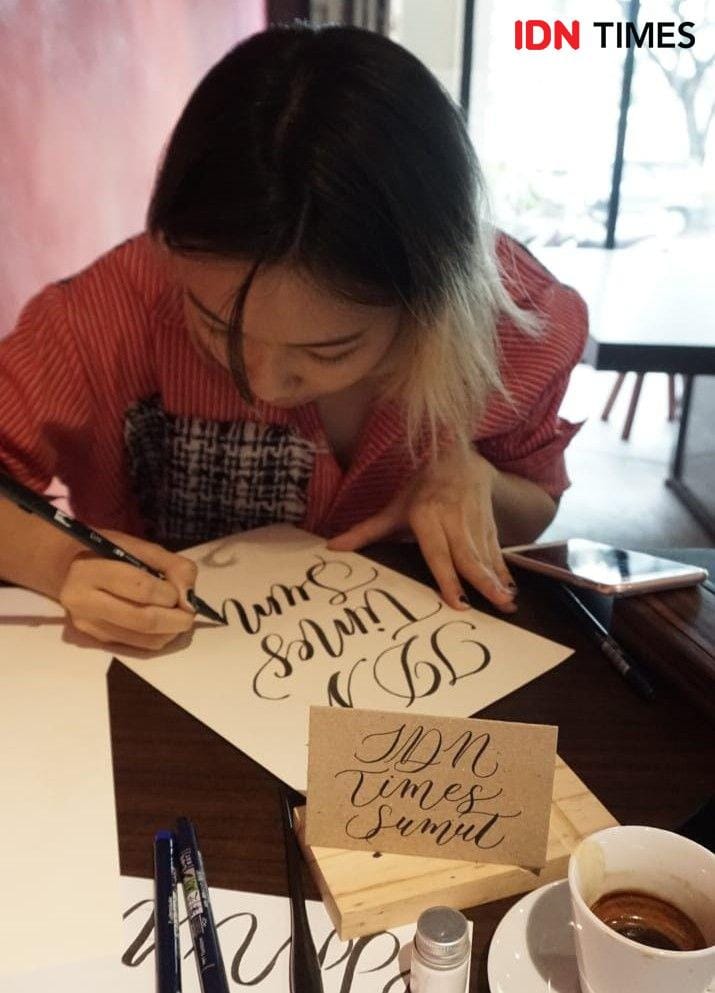 IDN TIMES
IDN
Times
Sum
IDN
Times
Sumut